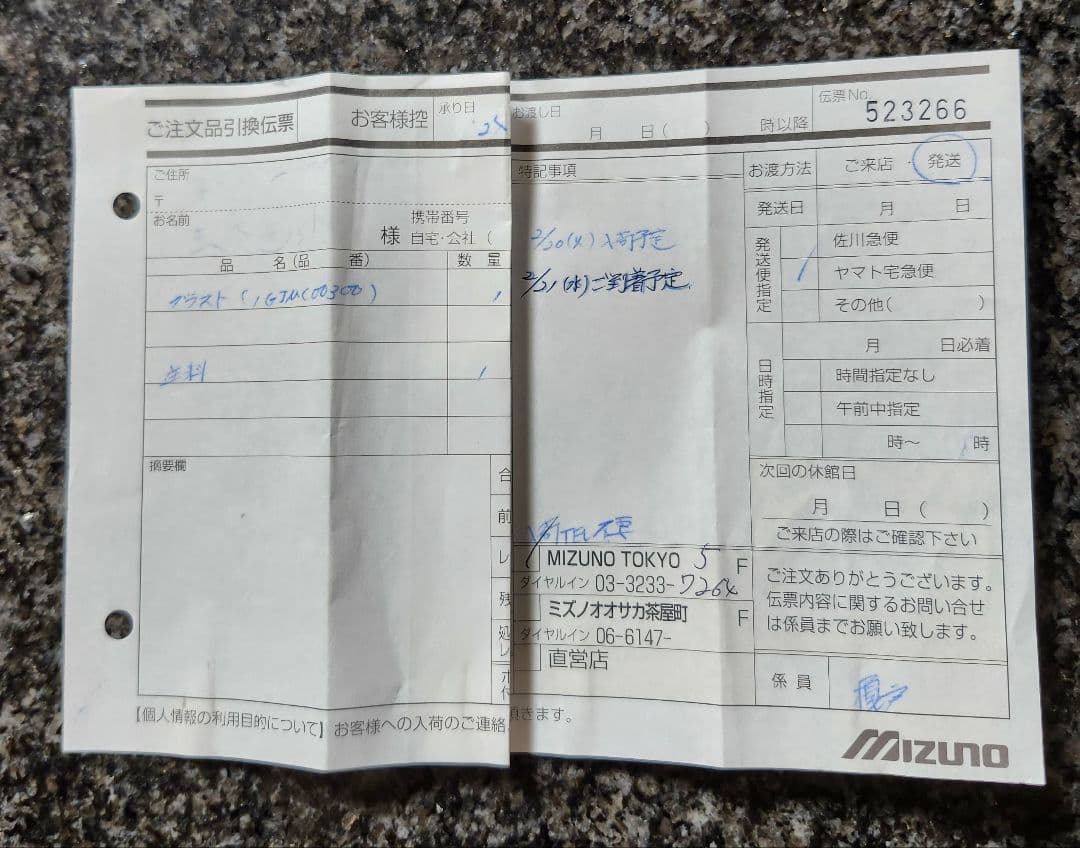 ご注文品引換伝票
お客様控
承り日
24
お渡し日
月 日( ) 時以降
伝票No.
523266
ご住所
〒
お名前
様
携帯番号
自宅・会社 (
品 名(品 番)
数 量
ブラスト (1GJMC00300)
1
送料
1
摘要欄
合
前
レ
残
処
レ
ポ
付
特記事項
2/20(火)入荷予定
2/21(水)ご到着予定
TEL不要
MIZUNO TOKYO 5 F
ダイヤルイン 03-3233-7264
ミズノオオサカ茶屋町 F
ダイヤルイン 06-6147-
直営店
お渡方法
ご来店 ・ 発送
発送日
月 日
発送便指定
佐川急便
ヤマト宅急便
その他( )
日時指定
月 日必着
時間指定なし
午前中指定
時〜 時
次回の休館日
月 日 ( )
ご来店の際はご確認下さい
ご注文ありがとうございます。
伝票内容に関するお問い合せ
は係員までお願い致します。
係 員
【個人情報の利用目的について】お客様への入荷のご連絡
頂きます。
MIZUNO